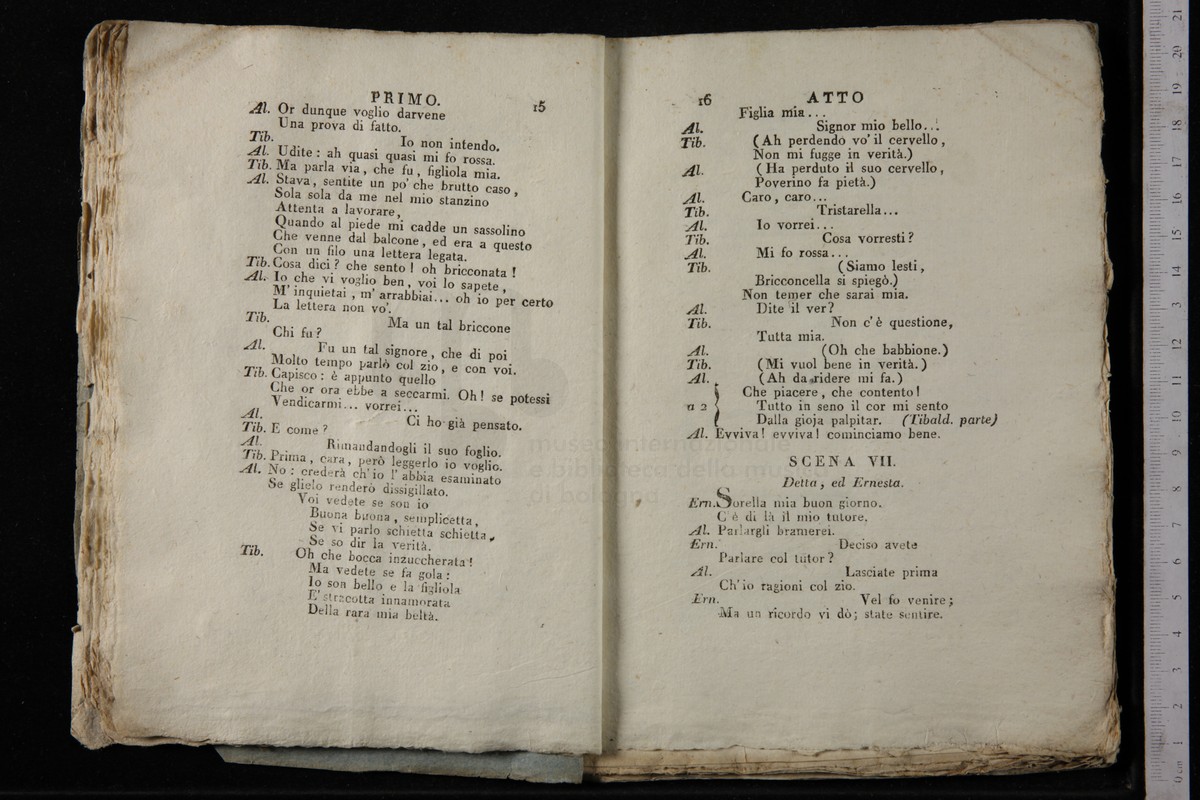 PRIMO. 15
Al. Or dunque voglio darvene
Una prova di fatto.
Tib. Io non intendo.
Al. Udite: ah quasi quasi mi fo rossa.
Tib. Ma parla via, che fu, figliola mia.
Al. Stava, sentite un po' che brutto caso,
Sola sola da me nel mio stanzino
Attenta a lavorare,
Quando al piede mi cadde un sassolino
Che venne dal balcone, ed era a questo
Con un filo una lettera legata.
Tib. Cosa dici? che sento! oh bricconata!
Al. Io che vi voglio ben, voi lo sapete,
M'inquietai, m'arrabbiai... oh io per certo
La lettera non vo'.
Tib. Ma un tal briccone
Chi fu?
Al. Fu un tal signore, che di poi
Molto tempo parlò col zio, e con voi.
Tib. Capisco: è appunto quello
Che or ora ebbe a seccarmi. Oh! se potessi
Vendicarmi... vorrei...
Al. Ci ho già pensato.
Tib. E come?
Al. Rimandandogli il suo foglio.
Tib. Prima, cara, però leggerlo io voglio.
Al. No: crederà ch'io l'abbia esaminato
Se glielo renderò dissigillato.
Voi vedete se son io
Buona buona, semplicetta,
Se vi parlo schietta schietta,
Se so dir la verità.
Tib. Oh che bocca inzuccherata!
Ma vedete se fa gola:
Io son bello e la figliola
E' stracotta innamorata
Della rara mia beltà.
16 ATTO
Figlia mia...
Al. Signor mio bello...
Tib. (Ah perdendo vo' il cervello,
Non mi fugge in verità.)
Al. (Ha perduto il suo cervello,
Poverino fa pietà.)
Al. Caro, caro...
Tib. Tristarella...
Al. Io vorrei...
Tib. Cosa vorresti?
Al. Mi fo rossa...
Tib. (Siamo lesti,
Bricconcella si spiegò.)
Non temer che sarai mia.
Al. Dite il ver?
Tib. Non c'è questione,
Tutta mia.
Al. (Oh che babbione.)
Tib. (Mi vuol bene in verità.)
Al. (Ah da ridere mi fa.)
Che piacere, che contento!
a 2 Tutto in seno il cor mi sento
Dalla gioja palpitar. (Tibald. parte)
Al. Evviva! evviva! cominciamo bene.
SCENA VII.
Detta, ed Ernesta.
Ern. Sorella mia buon giorno.
C'è di là il mio tutore.
Al. Parlargli bramerei.
Ern. Deciso avete
Parlare col tutor?
Al. Lasciate prima
Ch'io ragioni col zio.
Ern. Vel fo venire;
Ma un ricordo vi dò; state sentire.
museo internazionale
e biblioteca della musica
di bologna